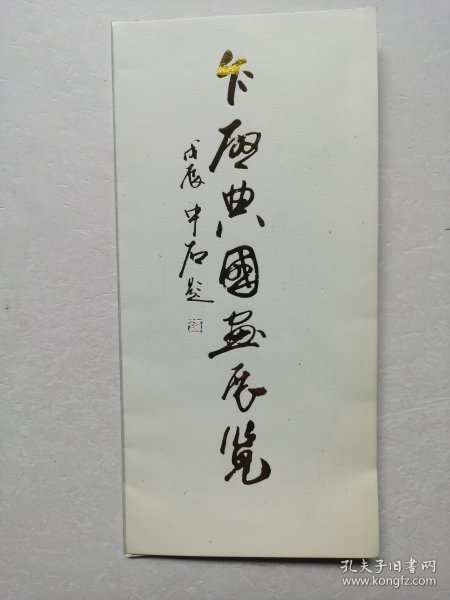 卞典國畫展览
戊辰 中石题
孔夫子旧书网
www.kongfz.com